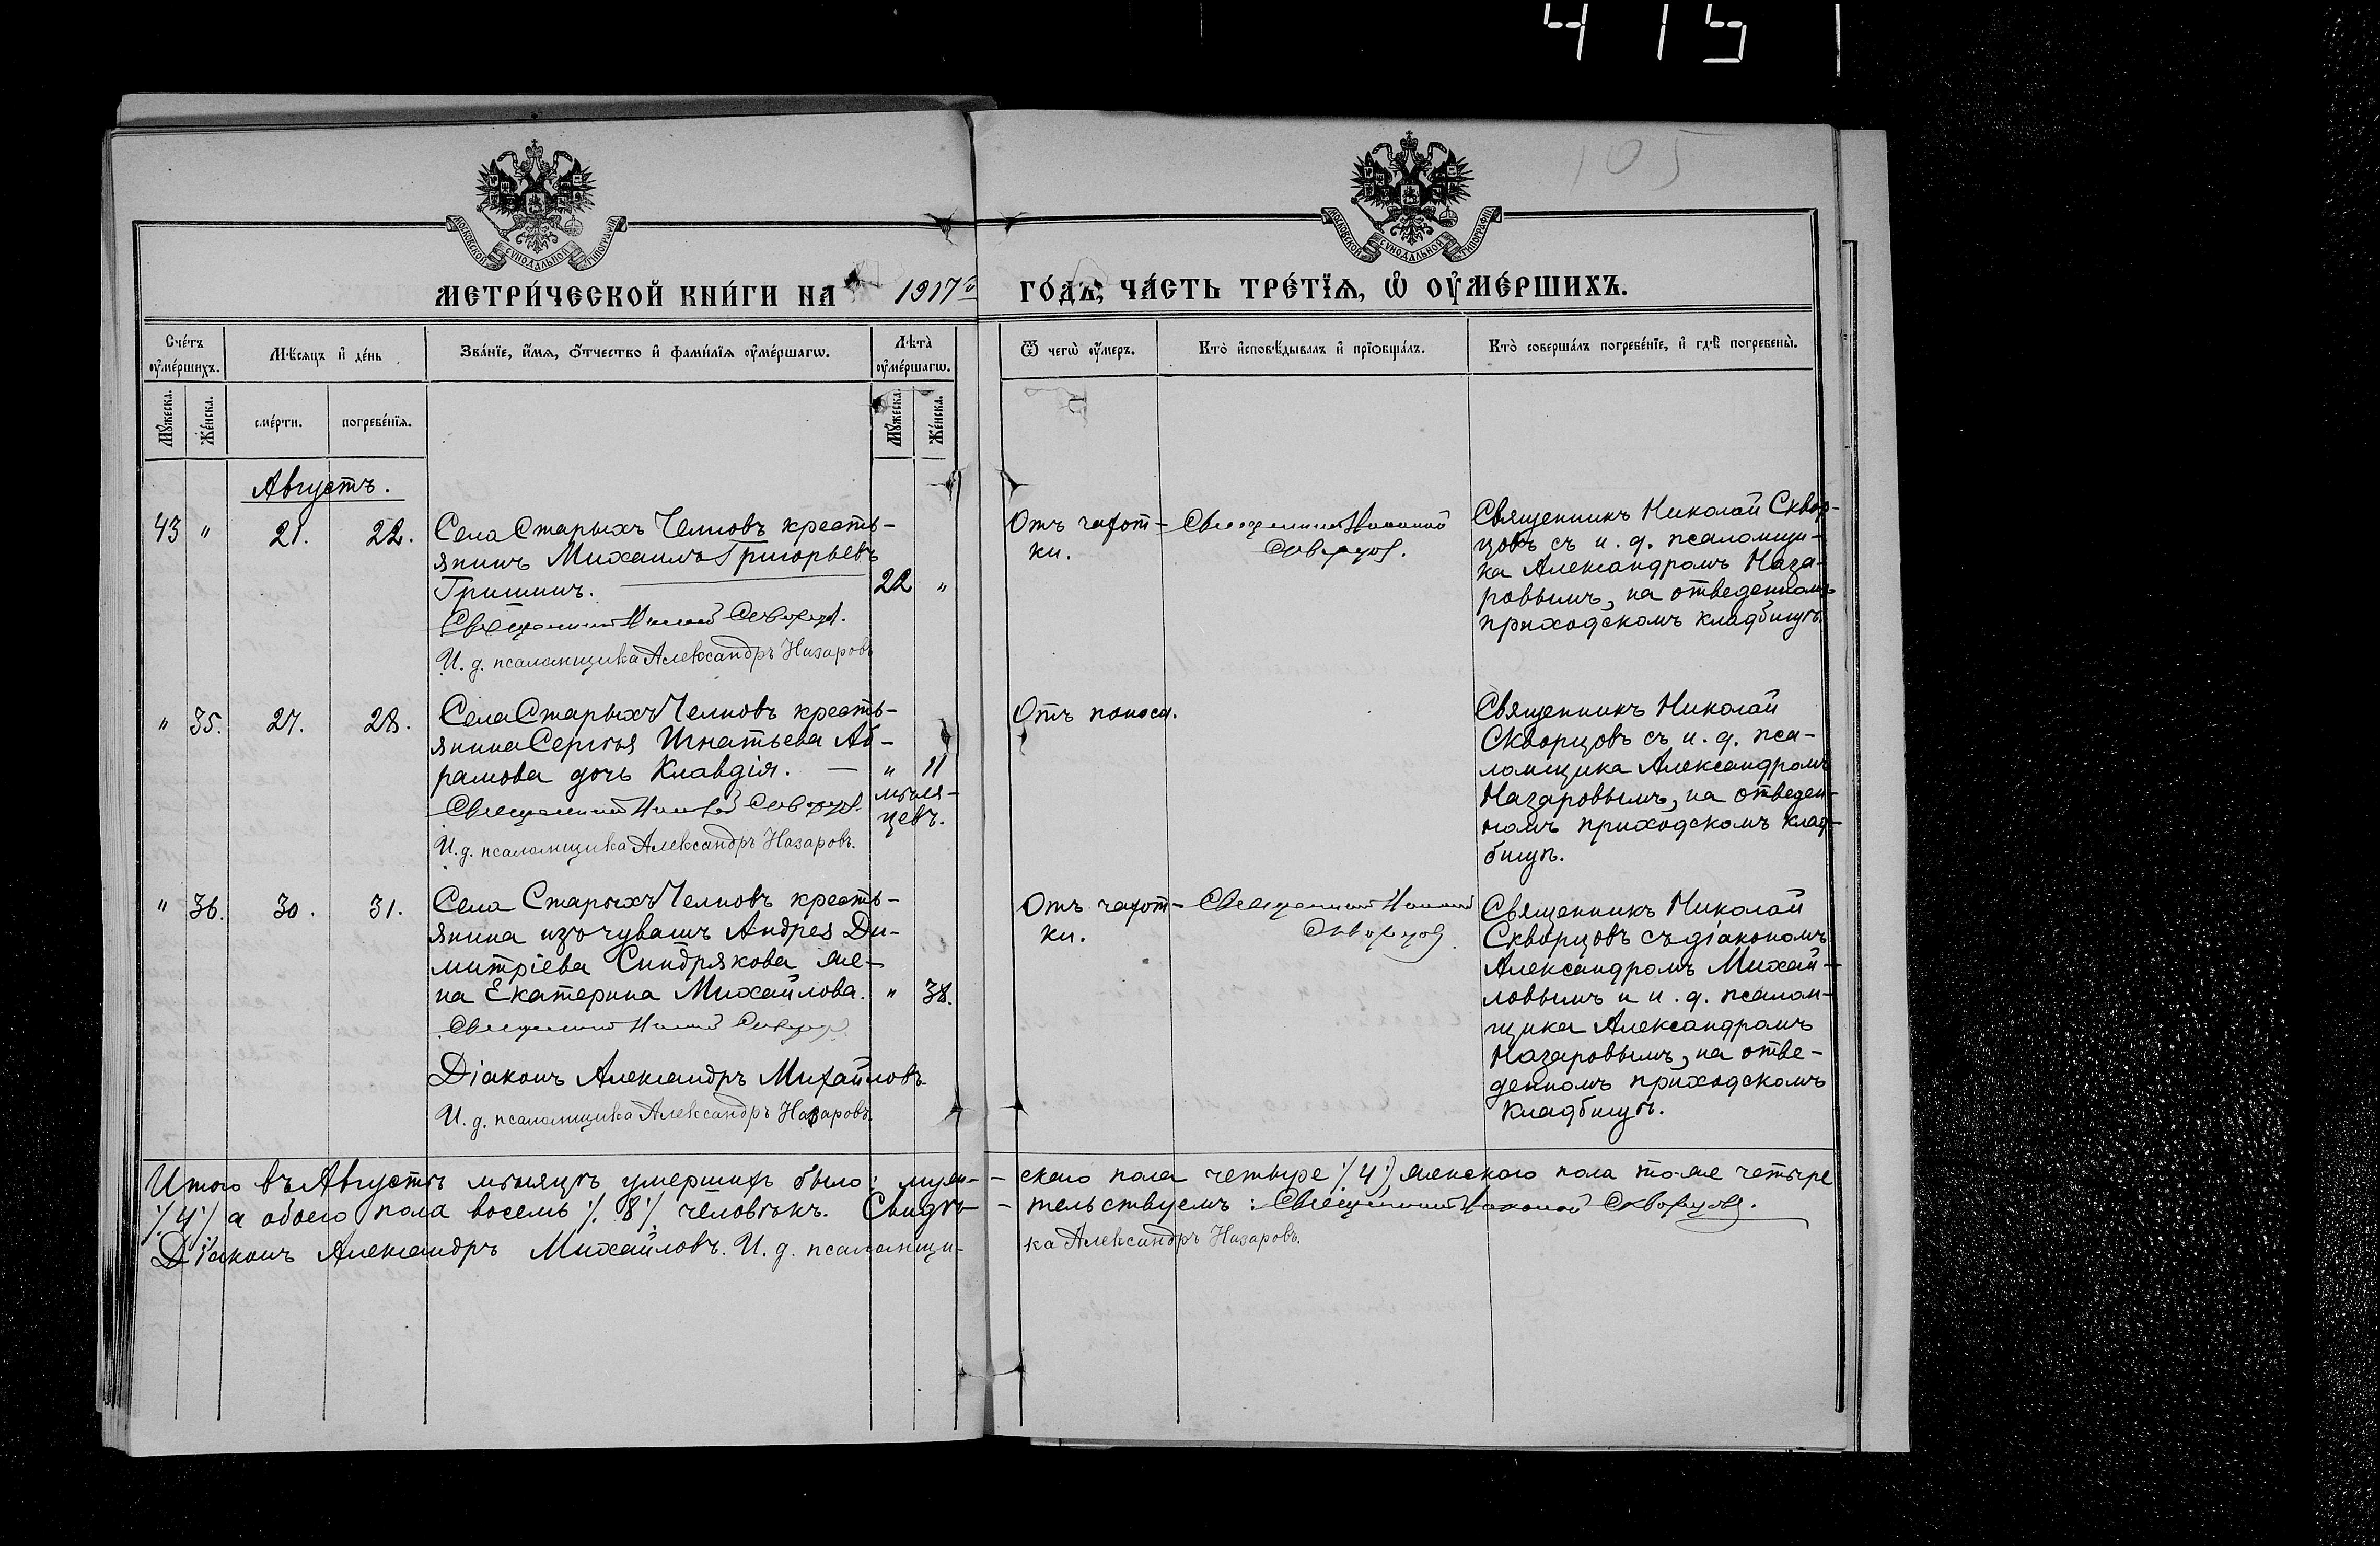 415
105
МОСКОВСКОЙ СѴНОДАЛЬНОЙ ТИПОГРАФІИ
МОСКОВСКОЙ СѴНОДАЛЬНОЙ ТИПОГРАФІИ
МЕТРИ́ЧЕСКОЙ КНИ́ГИ НА 1917й ГО́ДЪ, ЧА́СТЬ ТРЕ́ТЇѦ, Ѡ҆ ОУ҆МЕ́РШИХЪ.
Сче́тъ оу҆ме́ршихъ.
Мѣ́сяцъ и҆ де́нь
Зва́нїе, и҆́мѧ, ѻ҆́тчество и҆ фами́лїѧ оу҆ме́ршагѡ.
Лѣ́та̀ оу҆ме́ршагѡ.
Ѿ чегѡ̀ оу҆́меръ.
Кто̀ и҆сповѣ́дывалъ и҆ прїѻбща́лъ.
Кто̀ соверша́лъ погребе́нїе, и҆ гдѣ̀ погребены̀.
Мꙋ́жеска.
Же́нска.
сме́рти.
погребе́нїѧ.
Мꙋ́жеска.
Же́нска.
Августъ.
43 " 21. 22.
Села Старыхъ Челновъ кресть-
янинъ Михаилъ Григорьевъ
Гришинъ. 22 "
Священникъ Николай Скворцовъ.
И. д. псаломщика Александръ Назаровъ
Отъ чахот-
ки.
Священникъ Николай
Скворцовъ.
Священникъ Николай Сквор-
цовъ съ и. д. псаломщи-
ка Александромъ Наза-
ровымъ, на отведенномъ
приходскомъ кладбищѣ.
" 35. 27. 28.
Села Старыхъ Челновъ кресть-
янина Сергѣя Игнатьева Аб-
рамова дочь Клавдія. — " 11
мѣся-
цевъ.
Священникъ Николай Скворцовъ.
И. д. псаломщика Александръ Назаровъ.
Отъ поноса.
Священникъ Николай
Скворцовъ съ и. д. пса-
ломщика Александромъ
Назаровымъ, на отведен-
номъ приходскомъ клад-
бищѣ.
" 36. 30. 31.
Села Старыхъ Челновъ кресть-
янина изъ чувашъ Андрея Ди-
митріева Синдрякова же-
на Екатерина Михайлова. " 38.
Священникъ Николай Скворцовъ.
Діаконъ Александръ Михайловъ.
И. д. псаломщика Александръ Назаровъ.
Отъ чахот-
ки.
Священникъ Николай
Скворцовъ
Священникъ Николай
Скворцовъ съ діакономъ
Александромъ Михай-
ловымъ и и. д. псалом-
щика Александромъ
Назаровымъ, на отве-
денномъ приходскомъ
кладбищѣ.
Итого въ Августѣ мѣсяцѣ умершихъ было: муж- - скаго пола четыре /.4./, женскаго пола тоже четыре
/.4./ а обоего пола восемь /.8./ человѣкъ. Свидѣ- - тельствуемъ: Священникъ Николай Скворцовъ.
Діаконъ Александръ Михайловъ. И. д. псаломщи- ка Александръ Назаровъ.